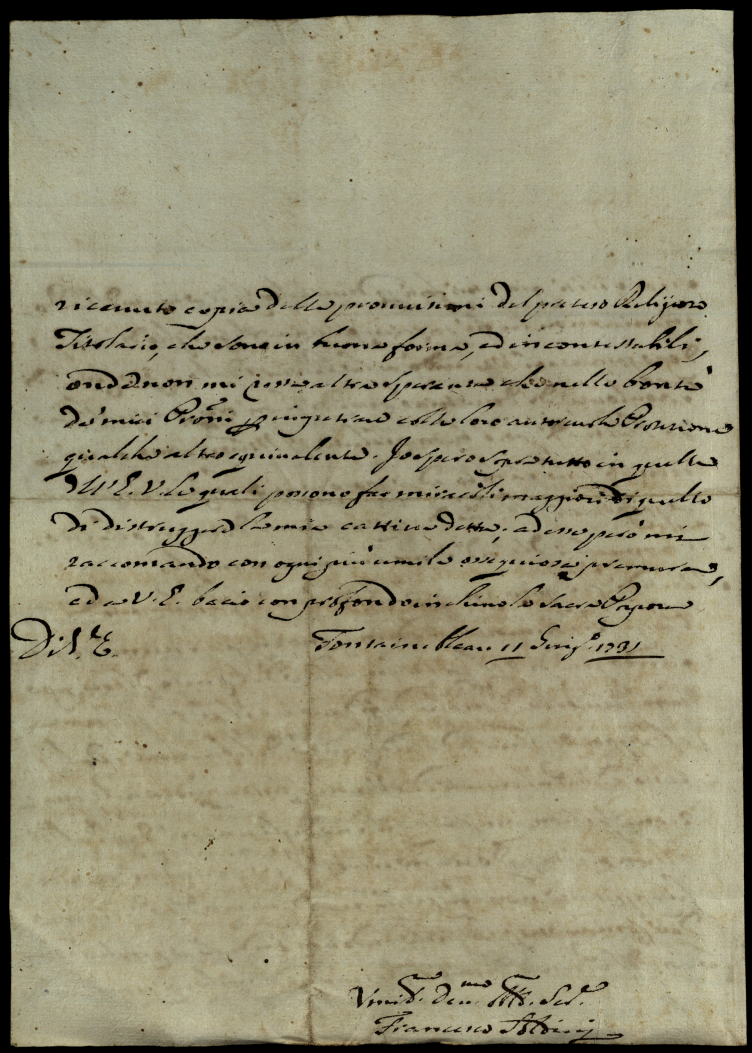 ricevuto copia delle provvisioni del preteso Religioso
Titolario, che sono in buona forma, ed incontestabili,
onde non mi resta altra speranza che nella bontà
de' miei Proñi p impetrar colla loro autorevole Protezione
qualche altro equivalente. Io spero sopra tutto in quella
dell'E. V. le quali possono far miracoli maggiori di quello
di distruggere la mia cattiva detta; ad esse però mi
raccomando con ogni più umile ossequiosa premura,
ed a V. E. bacio con profondo inchino la sacra Porpora
Di V. E. Fontainebleau 11 Giug.o 1731
Umil. Dev.mo Obb. Ser.
Francesco